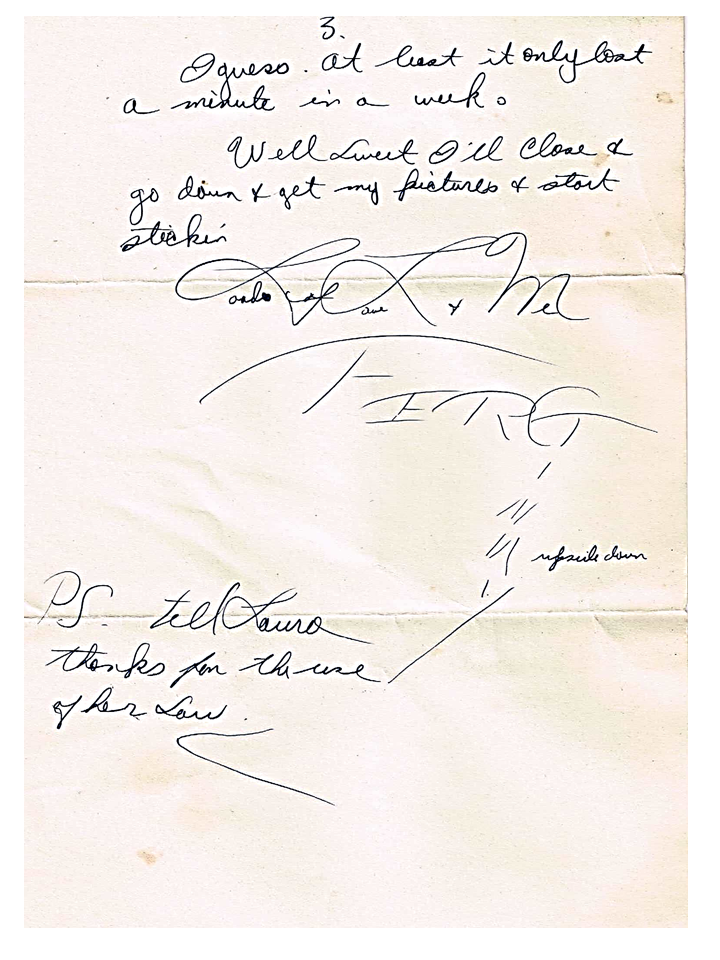 3.
I guess. At least it only lost
a minute in a week.
Well Sweet I'll close &
go down & get my pictures & start
stickin
Loads of Love & Me
FERG
upside down
PS. tell Laura
thanks for the use
of her